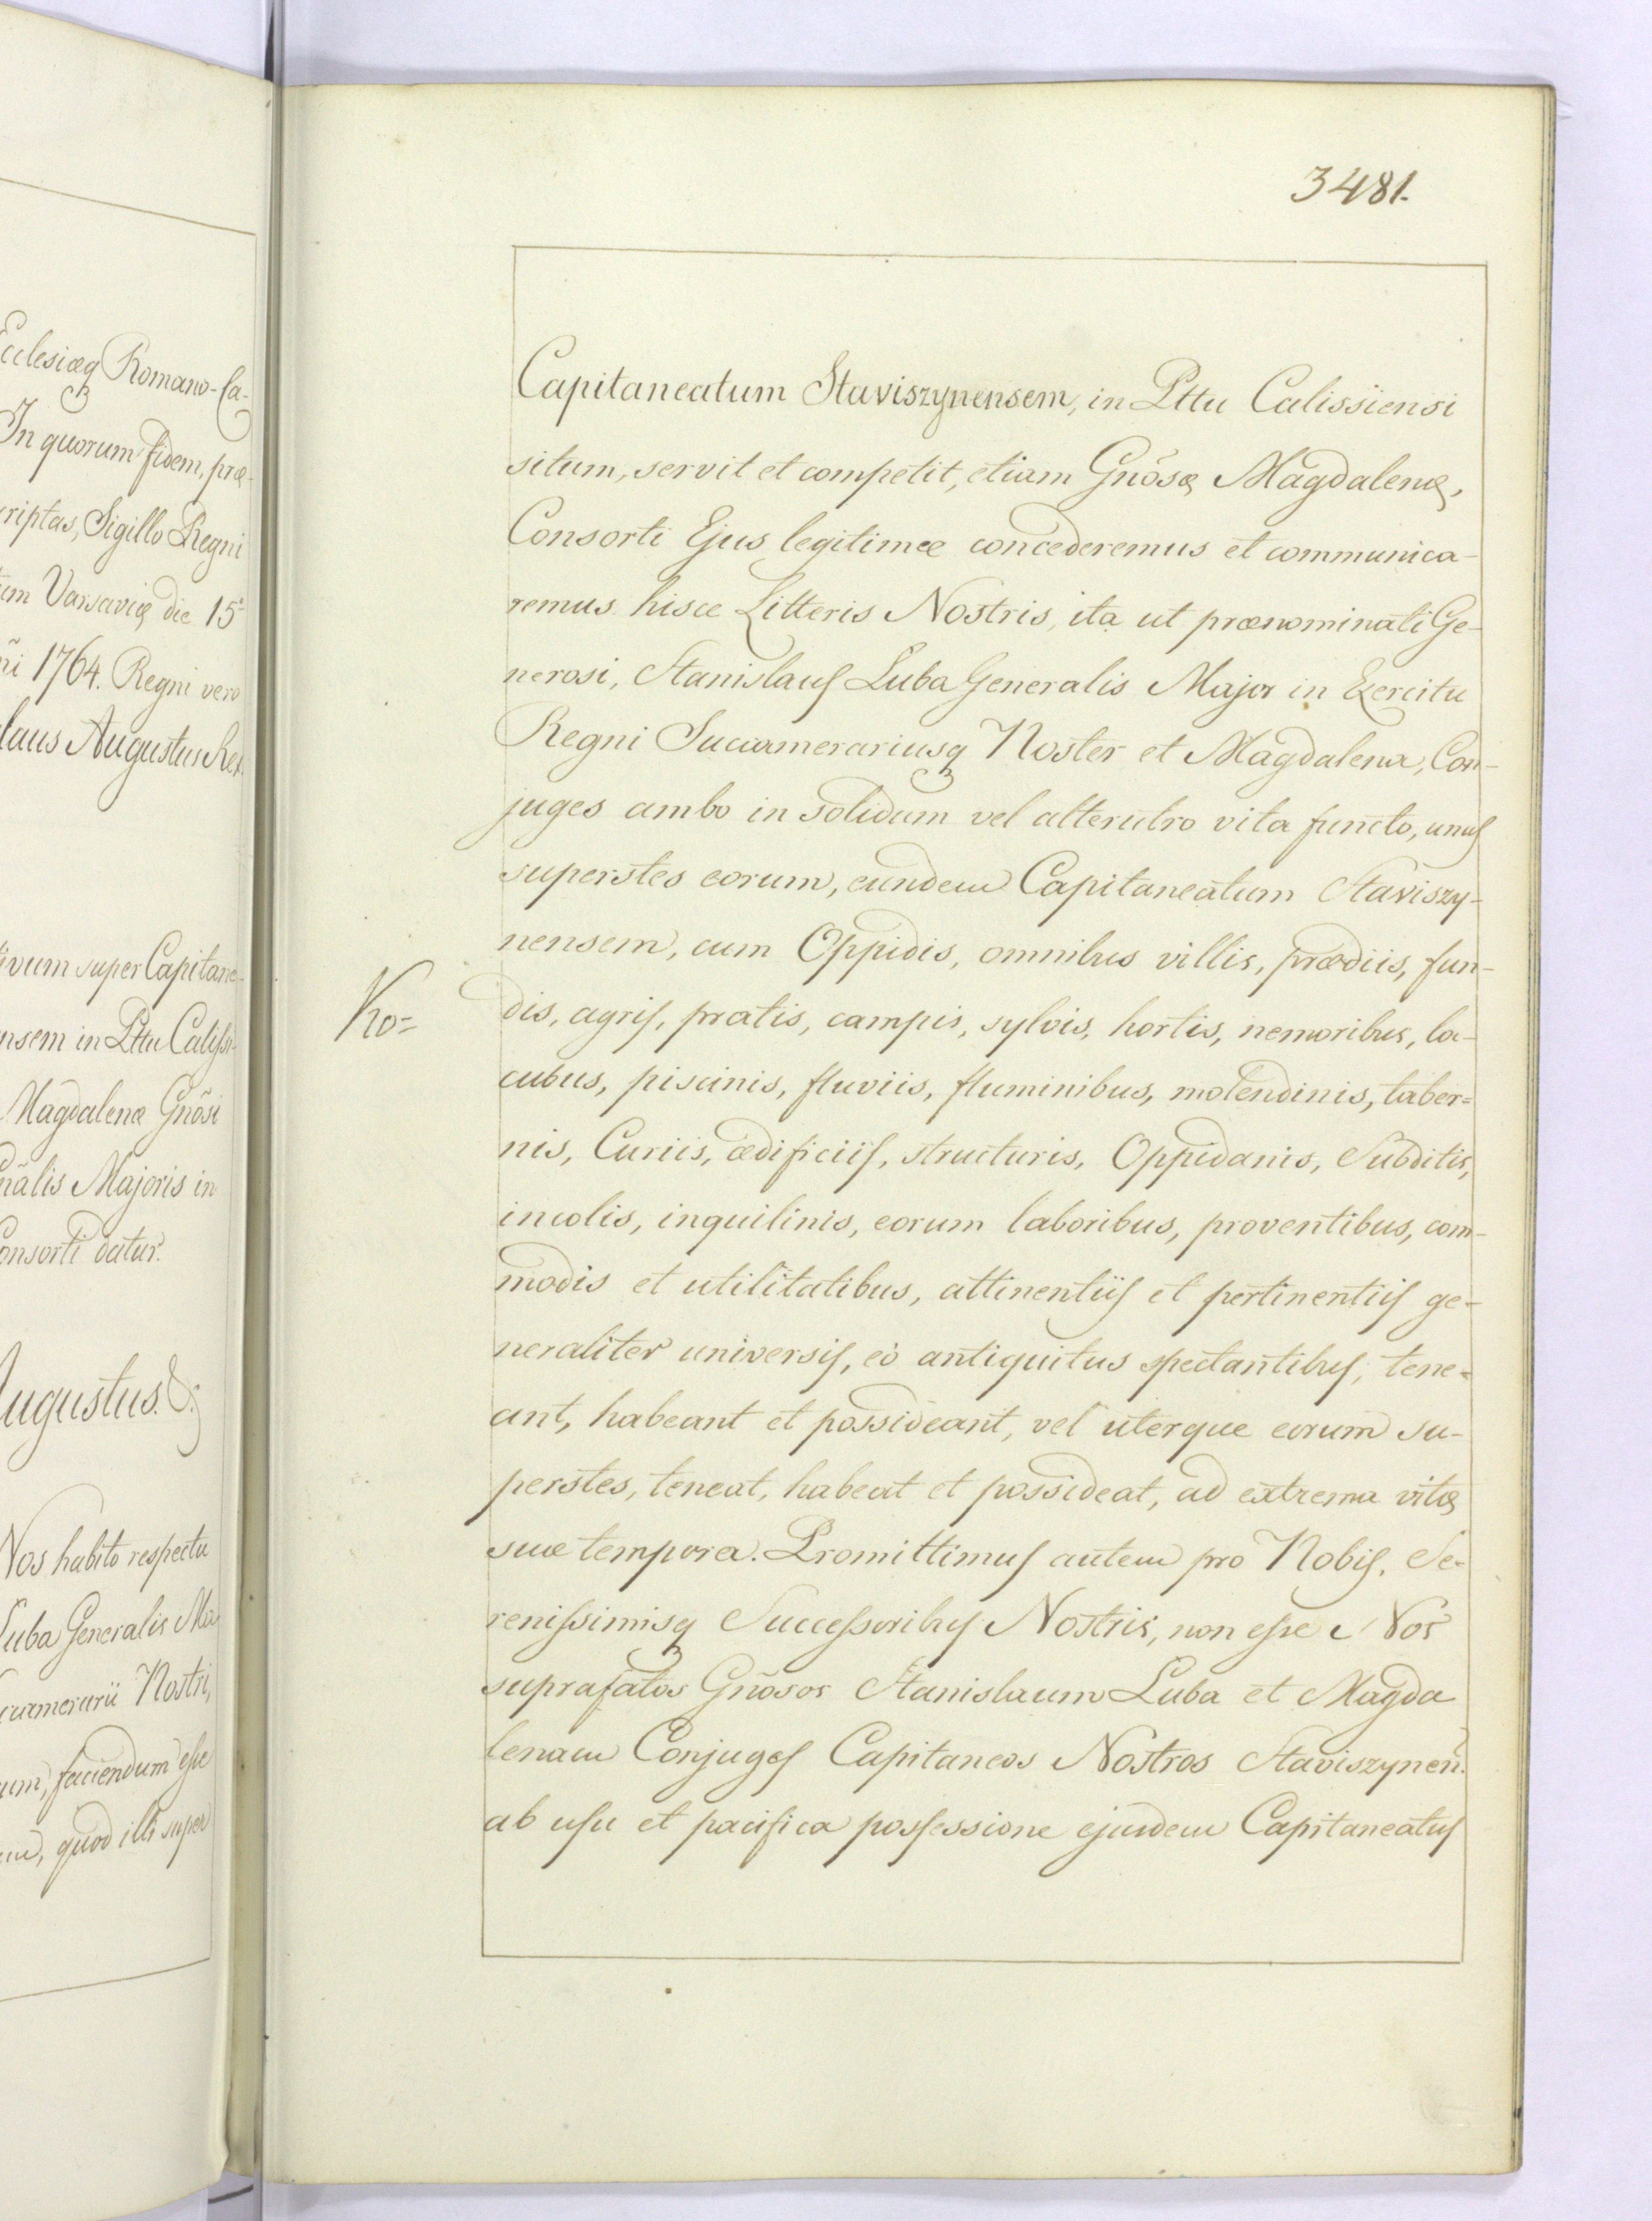 cclesiæq Romano-Ca-
In quorum fidem, præ-
riptas, Sigillo Regni
um Varsaviæ die 15ª
ni 1764. Regni vero
laus Augustus Rex.
ivum super Capitane-
nsem in Pttu Calissi-
Magdalenæ Gnõsi
nãlis Majoris in
onsorti datur.
ugustus. &
Nos habito respectu
Luba Generalis Ma-
cramerarii Nostri,
um, faciendum esse
quod illi super
3481.
Capitaneatum Staviszynensem, in Pttu Calissiensi
situm, servit et competit, etiam Gnõsæ Magdalenæ,
Consorti Ejus legitimæ concederemus et communica-
remus hisce Litteris Nostris, ita ut prænominati Ge-
nerosi, Stanislaus Luba Generalis Major in Exercitu
Regni Succamerariusq Noster et Magdalena, Con-
juges ambo in solidum vel alterutro vita functo, unus
superstes eorum, eundem Capitaneatum Staviszy-
nensem, cum Oppidis, omnibus villis, prædiis, fun-
Ko=
dis, agris, pratis, campis, sylvis, hortis, nemoribus, la-
cubus, piscinis, fluviis, fluminibus, molendinis, taber=
nis, Curiis, ædificiis, structuris, Oppidanis, Subditis,
incolis, inquilinis, eorum laboribus, proventibus, com-
modis et utilitatibus, attinentiis et pertinentiis ge-
neraliter universis, eò antiquitus spectantibus, tene-
ant, habeant et possideant, vel uterque eorum su-
perstes, teneat, habeat et possideat, ad extrema vitæ
suæ tempora. Promittimus autem pro Nobis, Se-
renissimisq Successoribus Nostris, non esse Nos
suprafatos Gnõsos Stanislaum Luba et Magda
lenam Conjuges Capitaneos Nostros Staviszynen̄.
ab usu et pacifica possessione ejusdem Capitaneatus